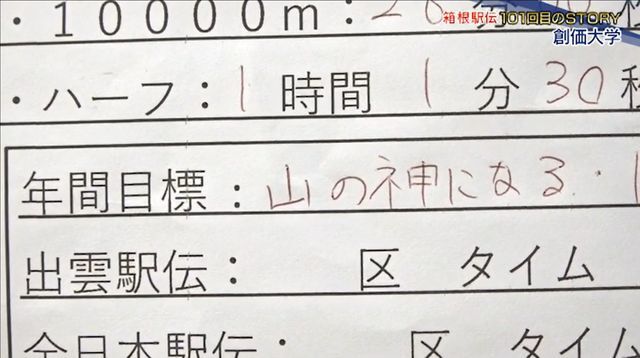 箱根駅伝 101回目のSTORY
創価大学
・10000m：2
・ハーフ：1時間1分30秒
年間目標：山の神になる・1
出雲駅伝：　　区　タイム
全日本駅伝：　　区　タイム